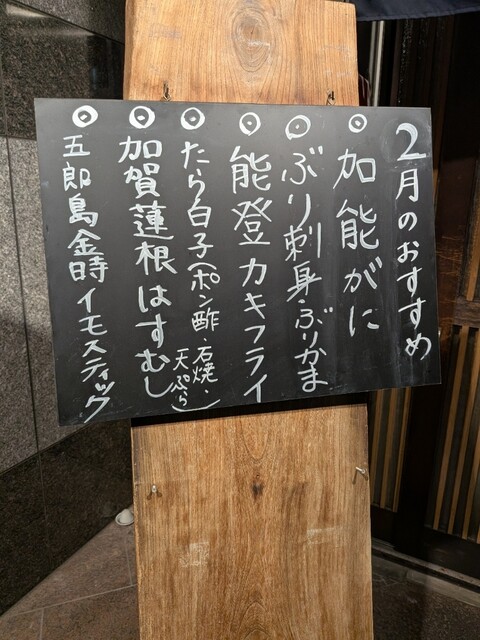 2月のおすすめ
◉加能がに
◉ぶり刺身・ぶりかま
◉能登カキフライ
◉たら白子(ポン酢・石焼・天ぷら)
◉加賀蓮根はすむし
◉五郎島金時イモスティック